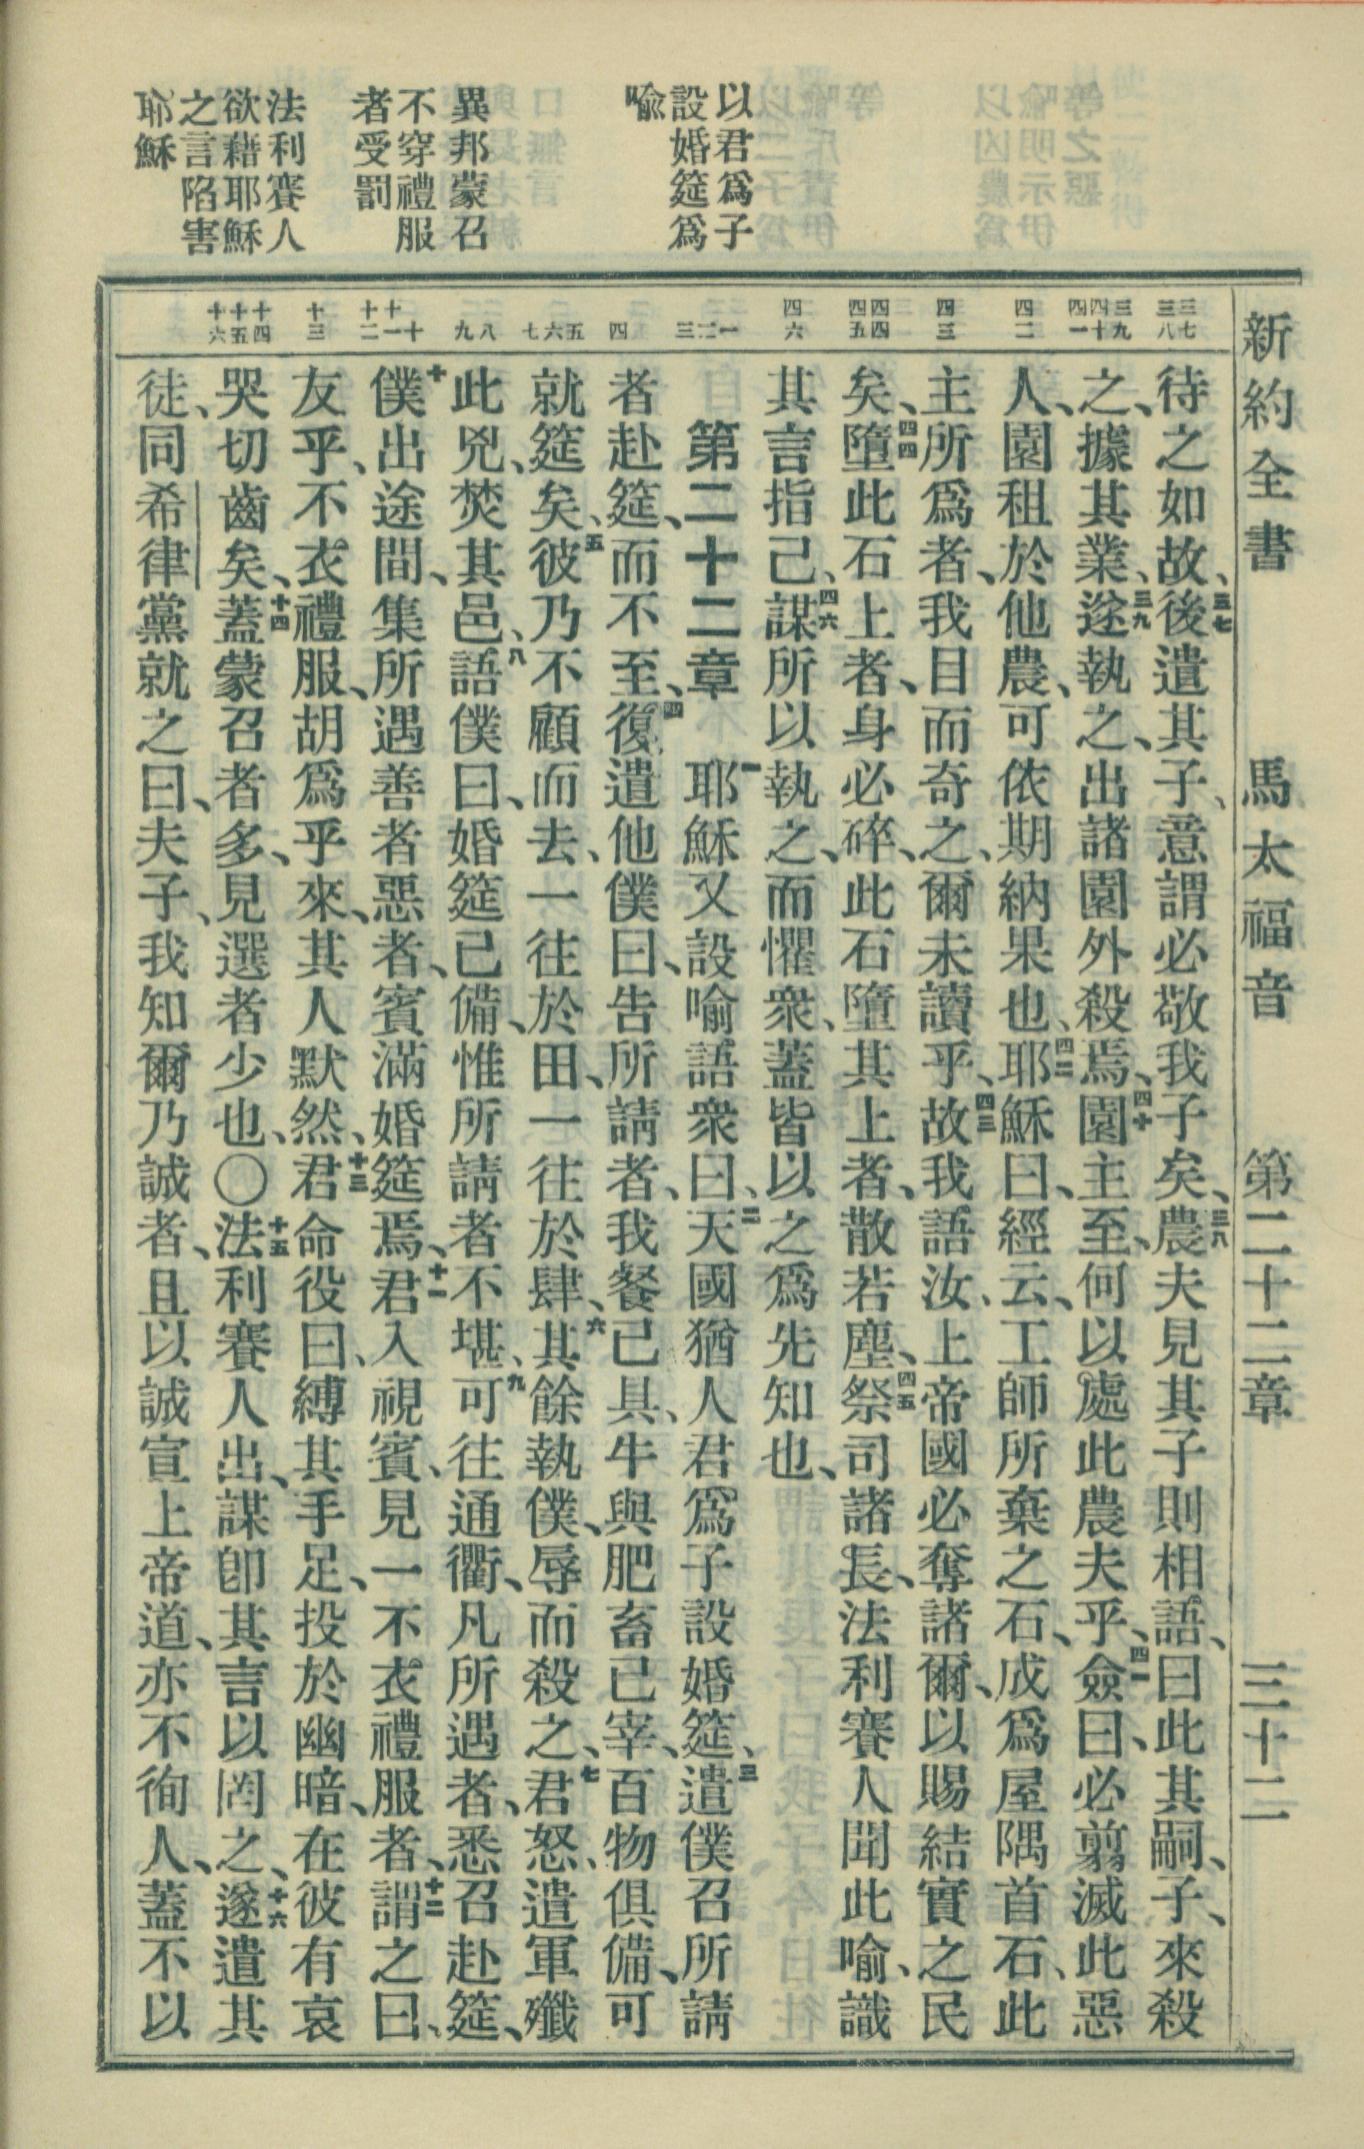 新約全書　馬太福音　第二十二章　三十二
以君爲子
設婚筵爲
喩
異邦蒙召
不穿禮服
者受罰
法利賽人
欲藉耶穌
之言陷害
耶穌
三七
三八
三九
四十
四一
四二
四三
四四
四五
四六
一
二
三
四
五
六
七
八
九
十
十一
十二
十三
十四
十五
十六
待之如故、三七後遣其子、意謂必敬我子矣、三八農夫見其子則相語、曰此其嗣、子、來殺
之、據其業、三九遂執之、出諸園外殺焉、四十園主至、何以處此農夫乎、四一僉曰、必翦滅此惡
人、園租於他農、可依期納果也、四二耶穌曰、經云、工師所棄之石、成爲屋隅首石、此
主所爲者、我目而奇之、爾未讀乎、四三故我語汝、上帝國必奪諸爾、以賜結實之民
矣、四四墮此石上者、身必碎、此石墮其上者、散若塵、四五祭司諸長、法利賽人聞此喩、識
其言指己、四六謀所以執之、而懼衆、蓋皆以之爲先知也、
第二十二章　一耶穌又設喩語衆曰、二天國猶人君爲子設婚筵、三遣僕召所請
者赴筵、而不至、四復遣他僕曰、告所請者、我餐已具、牛與肥畜已宰、百物俱備、可
就筵矣、五彼乃不顧而去、一往於田、一往於肆、六其餘執僕、辱而殺之、七君怒、遣軍殲
此兇、焚其邑、八語僕曰、婚筵已備、惟所請者不堪、九可往通衢、凡所遇者、悉召赴筵、
十僕出途間、集所遇善者惡者、賓滿婚筵焉、十一君入視賓、見一不衣禮服者、十二謂之曰、
友乎、不衣禮服、胡爲乎來、其人默然、十三君命役曰、縛其手足、投於幽暗、在彼有哀
哭切齒矣、十四蓋蒙召者多、見選者少也、〇十五法利賽人出、謀卽其言以罔之、十六遂遣其
徒、同希律黨就之曰、夫子、我知爾乃誠者、且以誠宣上帝道、亦不徇人、蓋不以